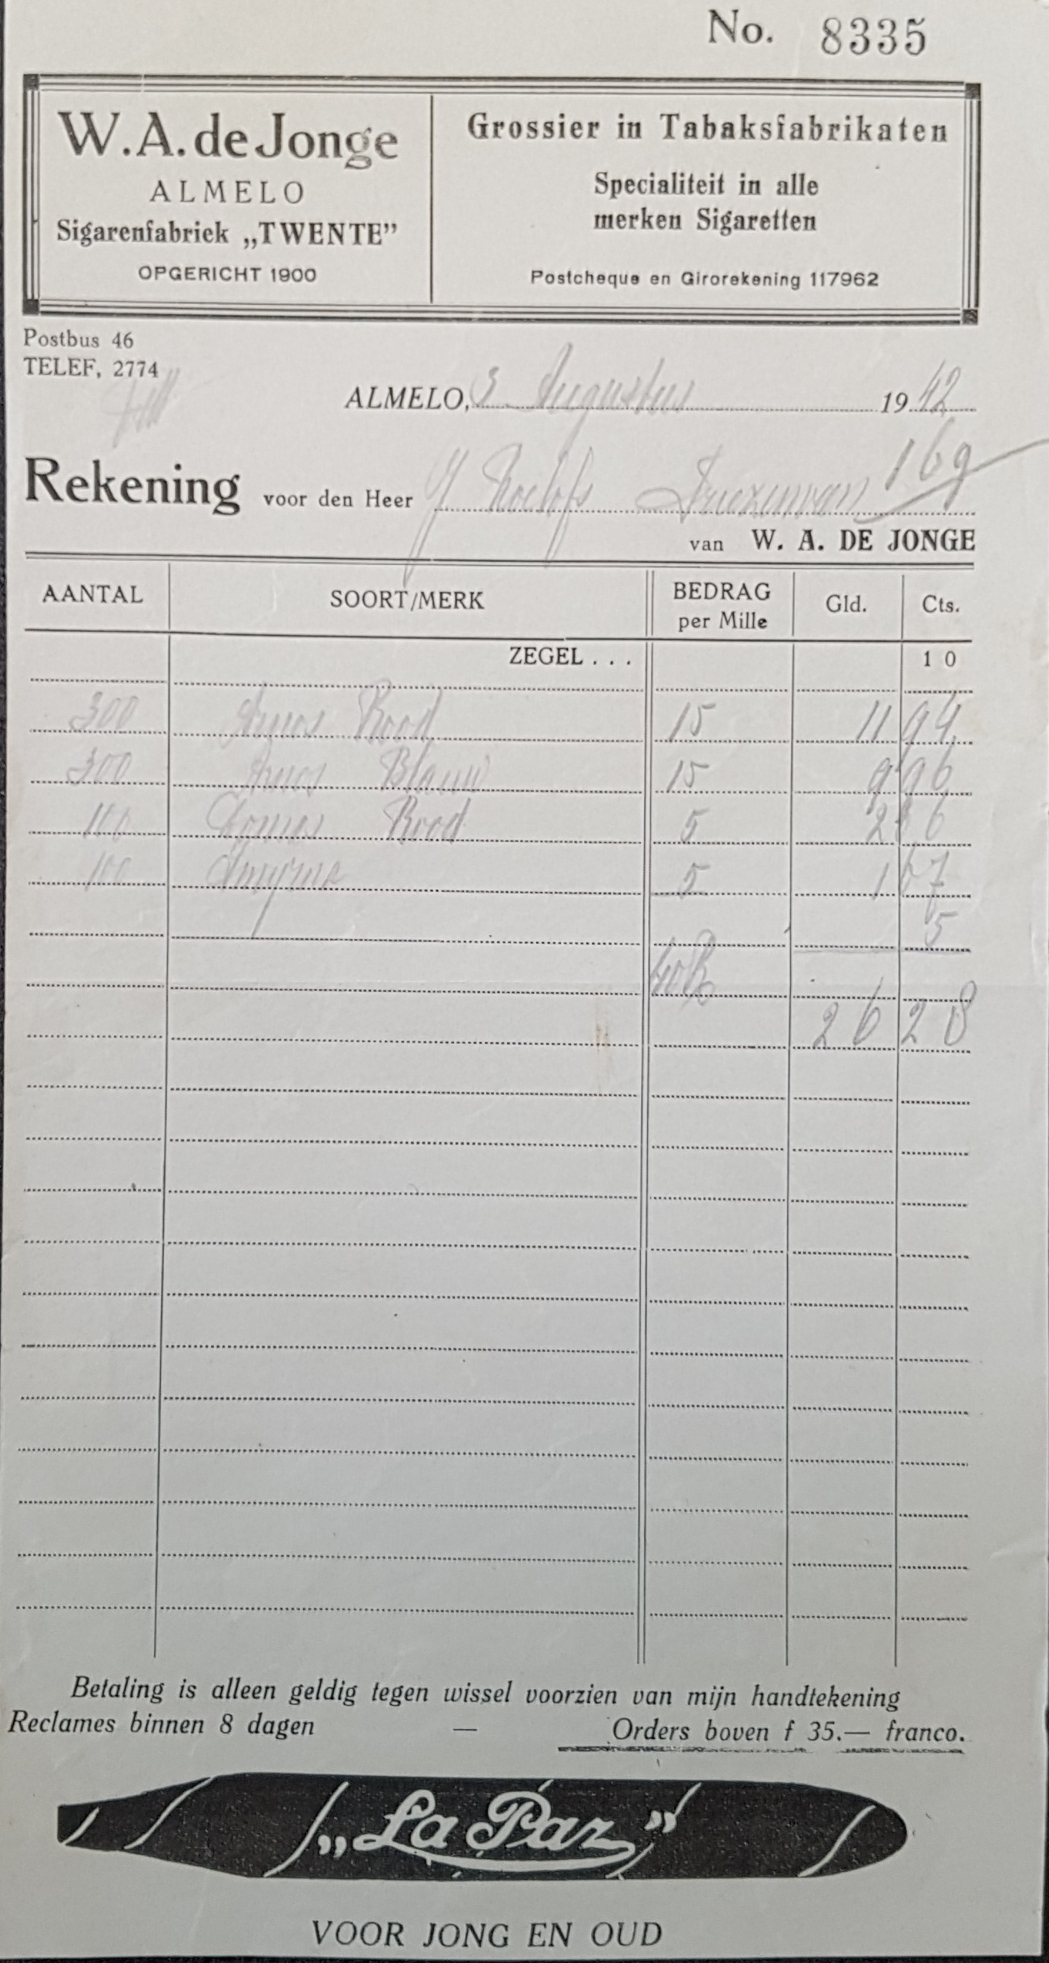 No. 8335
W.A. de Jonge
ALMELO
Sigarenfabriek „TWENTE”
OPGERICHT 1900
Grossier in Tabaksfabrikaten
Specialiteit in alle
merken Sigaretten
Postcheque en Girorekening 117962
Postbus 46
TELEF, 2774
ALMELO, 3 Augustus 1942
Rekening voor den Heer Roelofs 169
van W. A. DE JONGE
AANTAL SOORT/MERK BEDRAG per Mille Gld. Cts.
ZEGEL . . . 10
300 Rood 15 11 94
300 Blauw 15 9 96
100 Rood 5 2 6
100 5 1 67
5
26 28
Betaling is alleen geldig tegen wissel voorzien van mijn handtekening
Reclames binnen 8 dagen — Orders boven f 35.— franco.
„La Paz”
VOOR JONG EN OUD